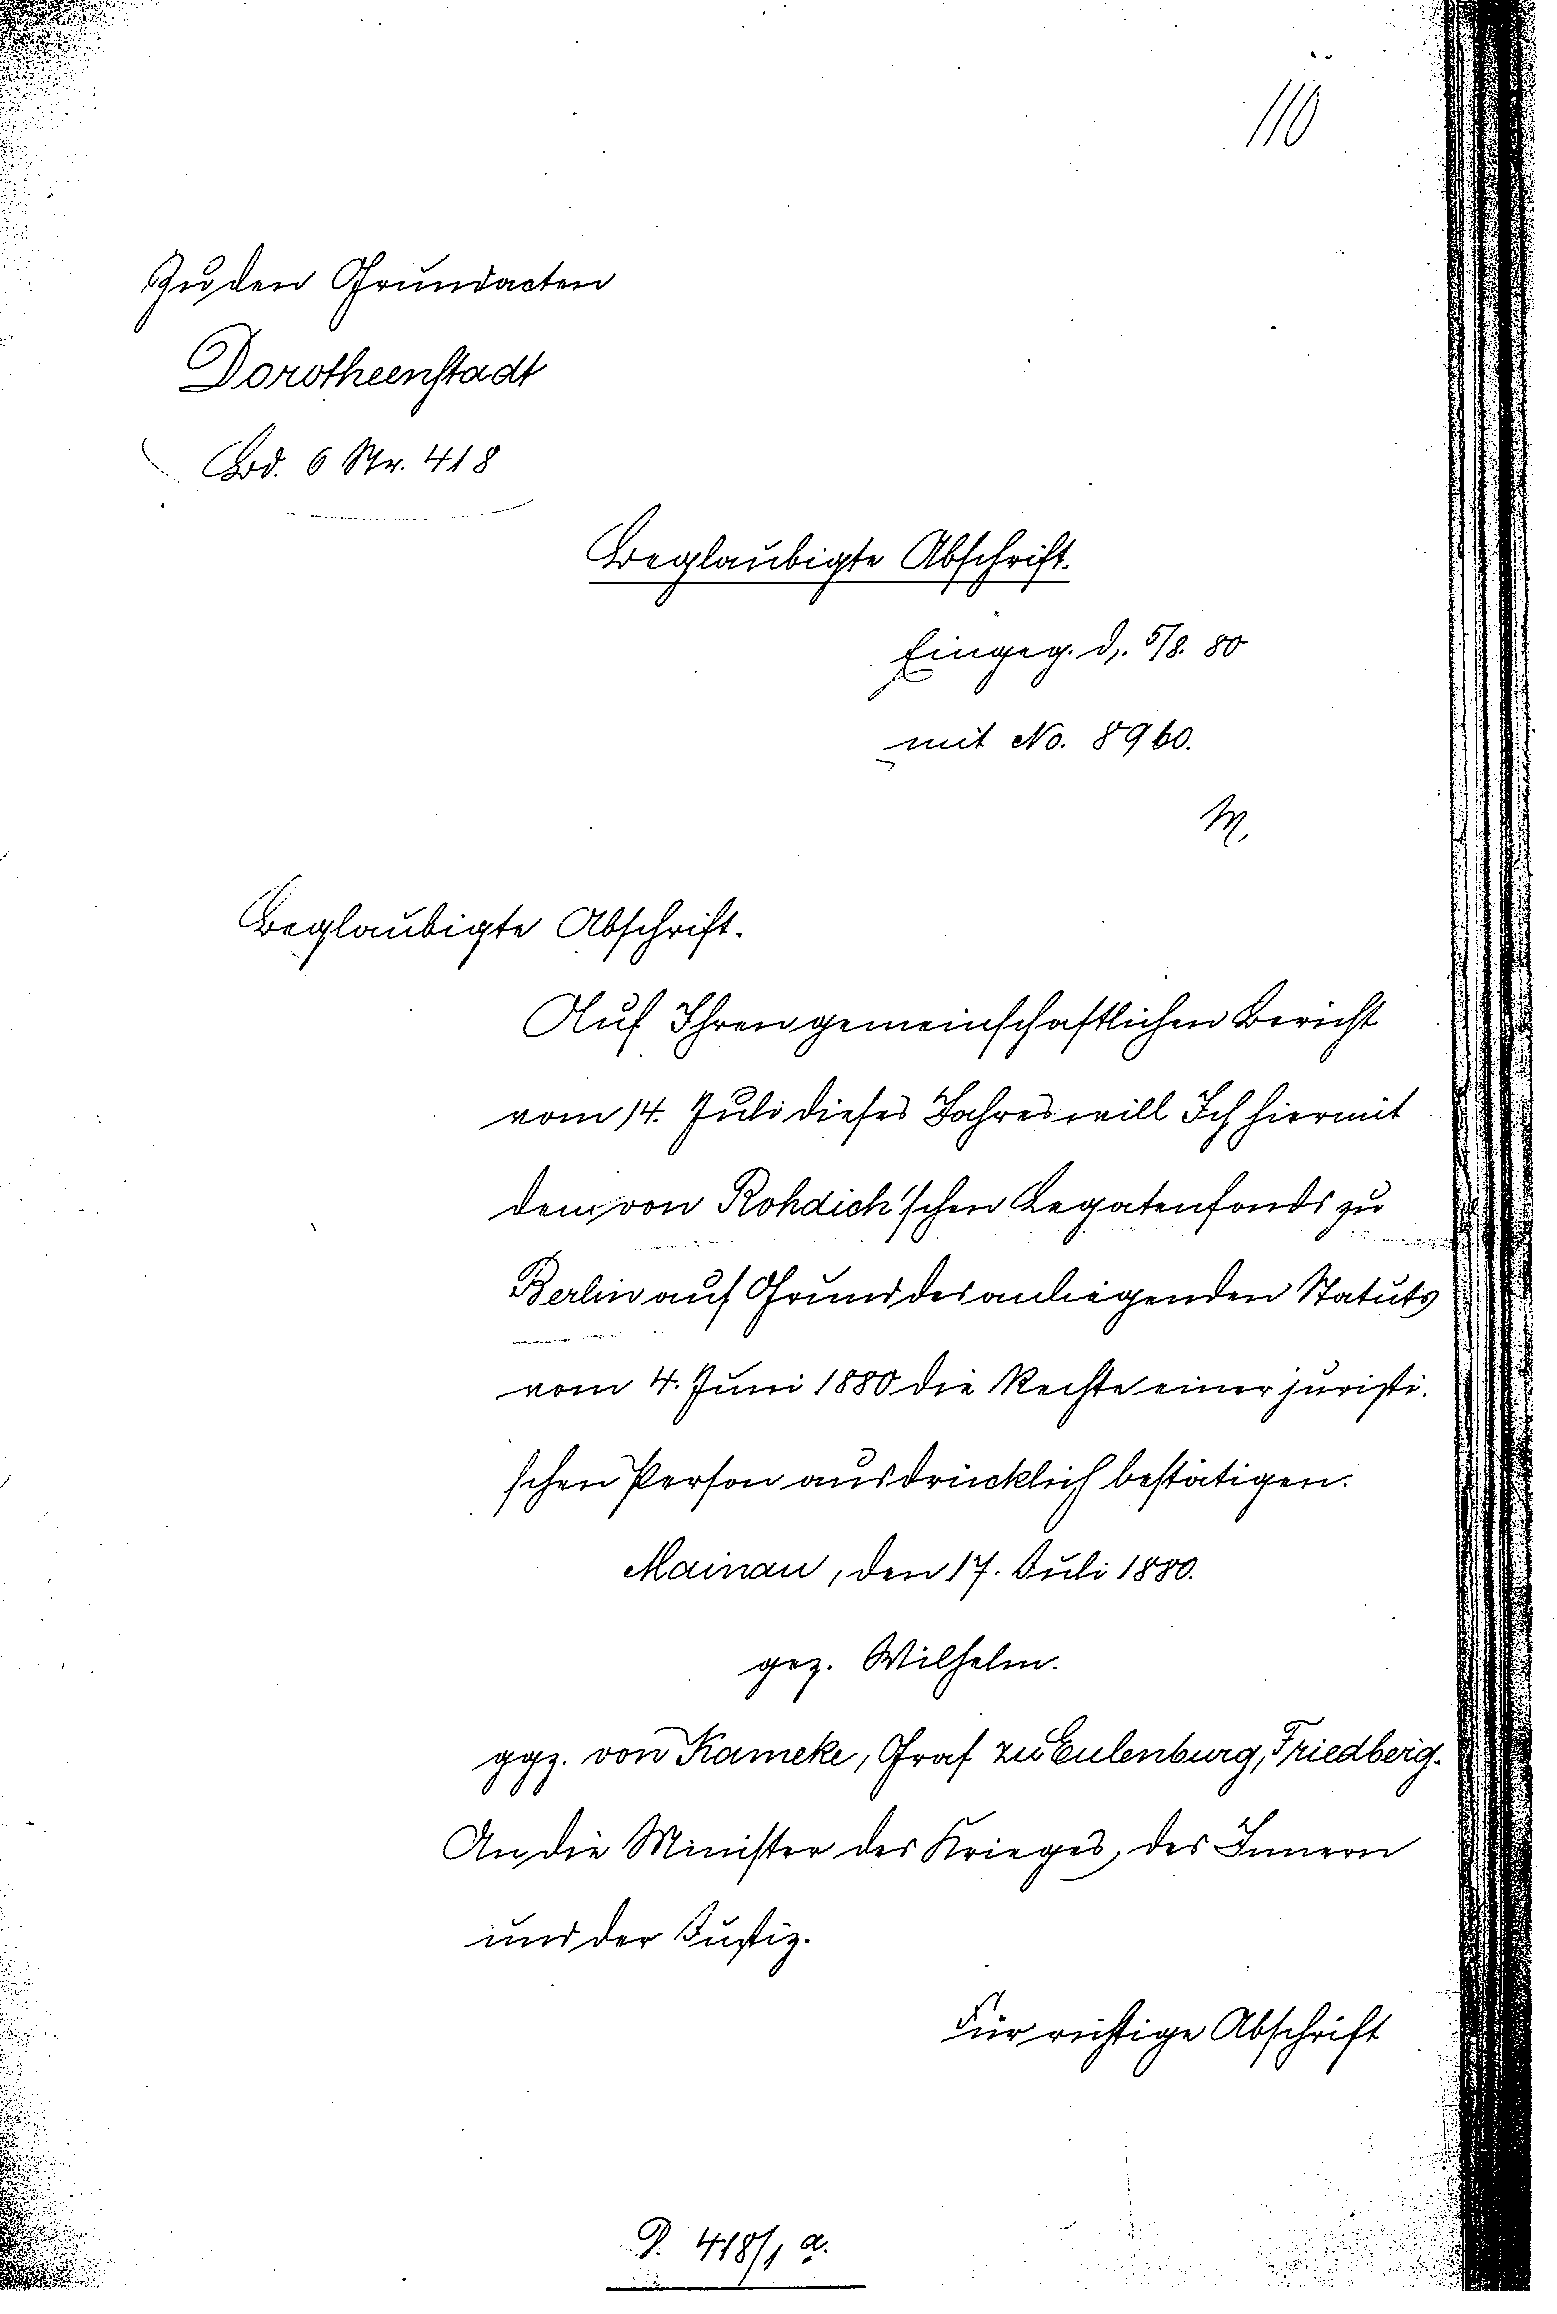 110
Zu den Grundacten
Dorotheenstadt
Bd. 6 Nr. 418
Beglaubigte Abschrift.
Eingeg. d. 5/8. 80
mit No. 8960.
M.
Beglaubigte Abschrift.
Auf Ihren gemeinschaftlichen Bericht
vom 14. Juli dieses Jahres will Ich hiermit
dem von Rohdich'schen Legatenfonds zu
Berlin auf Grund des anliegenden Statuts
vom 4. Juni 1880 die Rechte einer juristi-
schen Person ausdrücklich bestätigen.
Mainau, den 17. Juli 1880.
gez. Wilhelm.
ggz. von Kameke, Graf zu Eulenburg, Friedberg.
An die Minister des Krieges, des Innern
und der Justiz.
Für richtige Abschrift
D. 418/1 a.